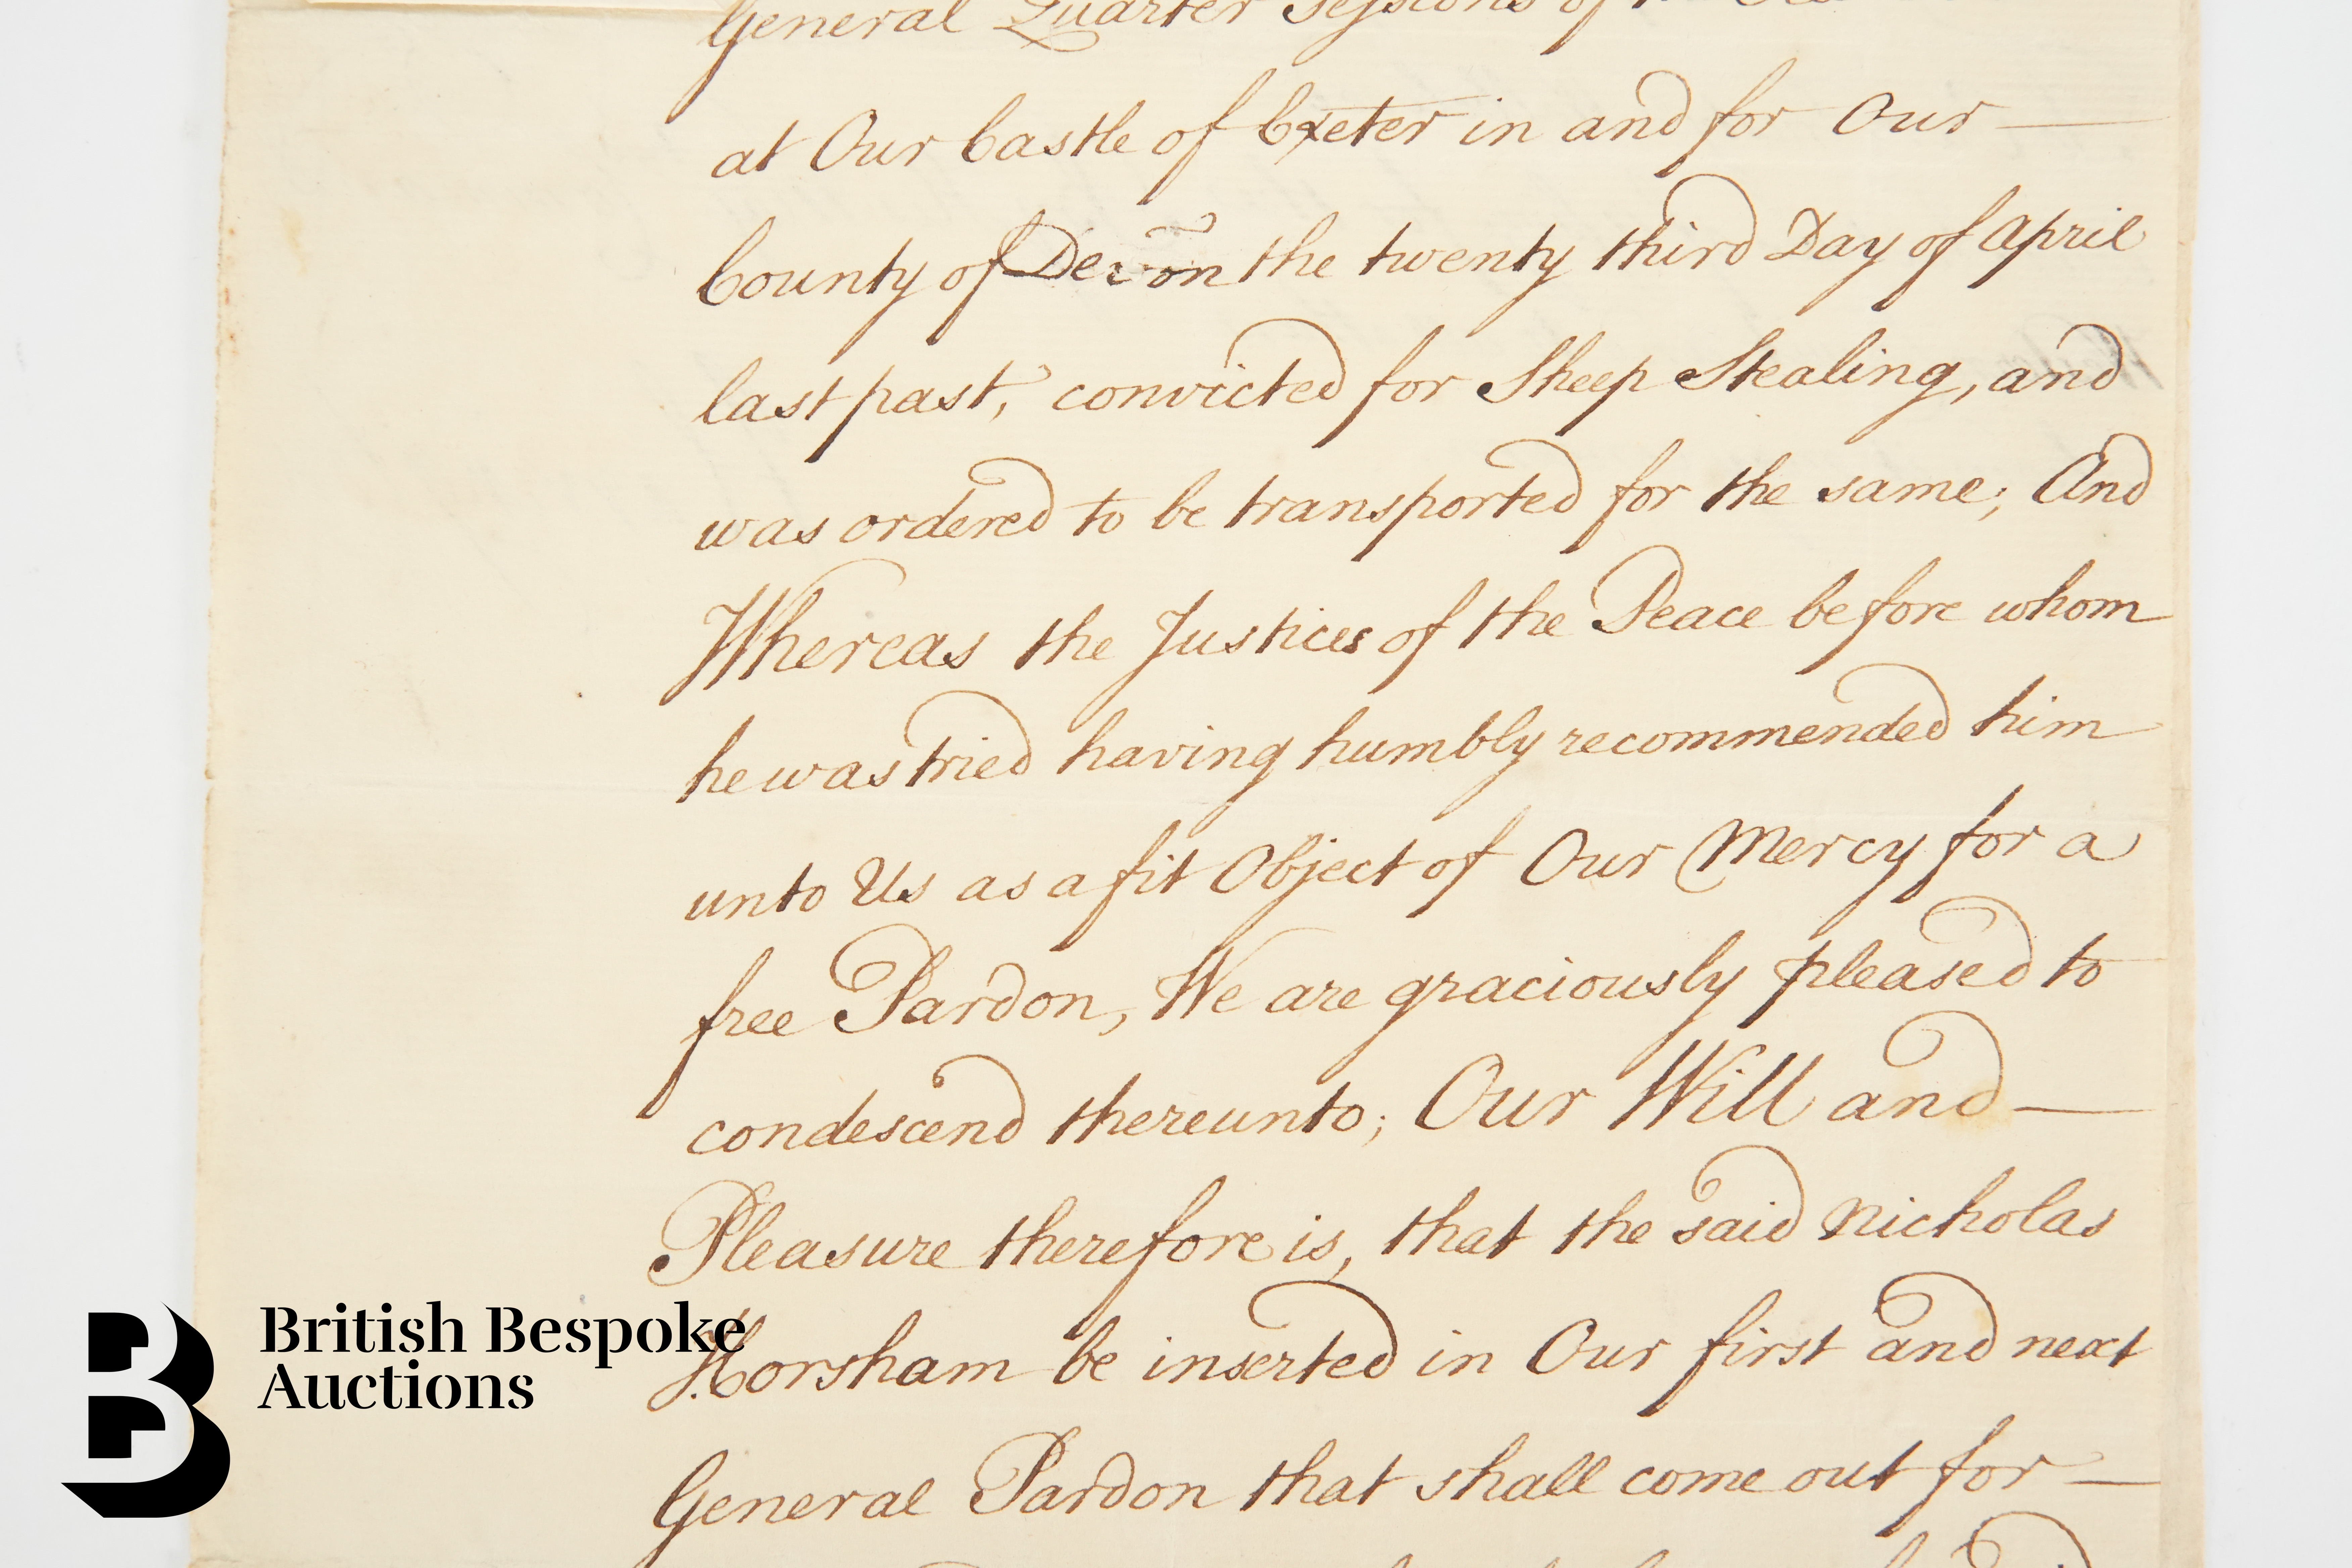 General Quarter Sessions of
at Our Castle of Exeter in and for Our
County of Devon the twenty third Day of April
last past, convicted for Sheep Stealing, and
was ordered to be transported for the same; And
Whereas the Justices of the Peace before whom
he was tried having humbly recommended him
unto Us as a fit Object of Our Mercy for a
free Pardon, We are graciously pleased to
condescend thereunto; Our Will and
Pleasure therefore is, that the said Nicholas
Horsham be inserted in Our first and next
General Pardon that shall come out for
British Bespoke
Auctions